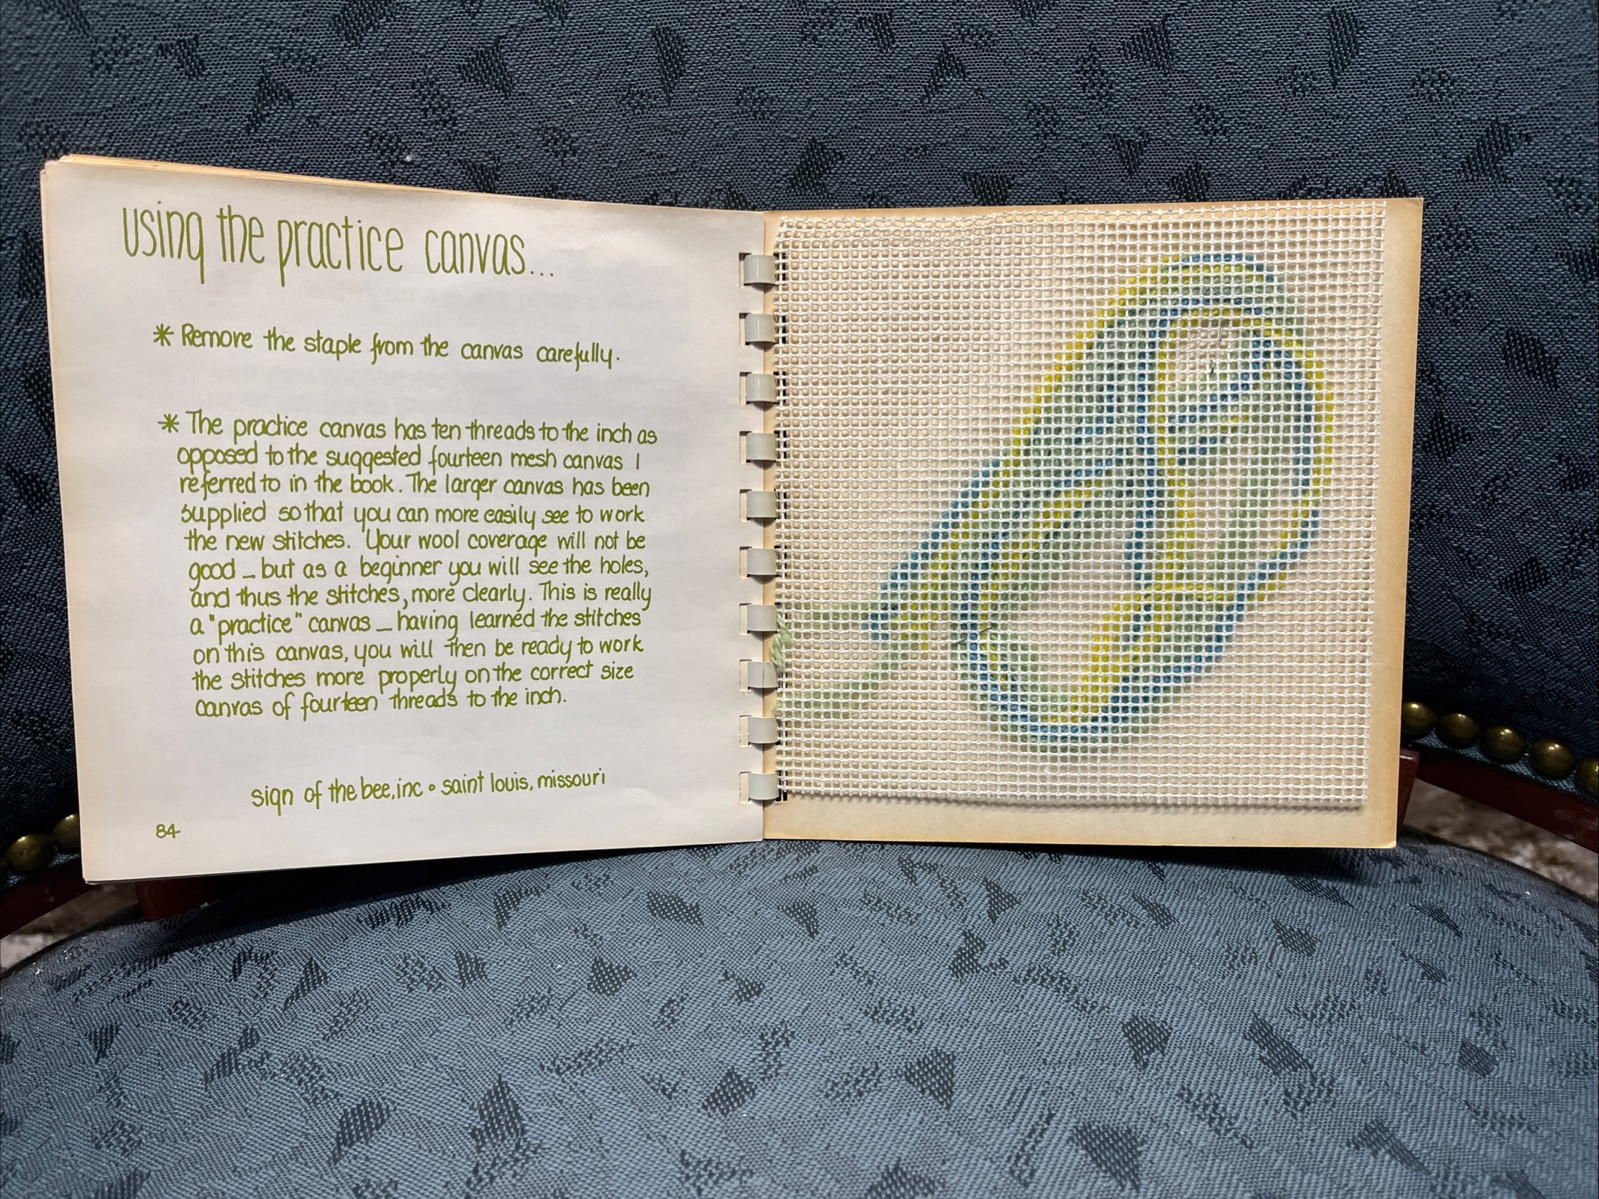 using the practice canvas...
* Remove the staple from the canvas carefully.
* The practice canvas has ten threads to the inch as
opposed to the suggested fourteen mesh canvas I
referred to in the book. The larger canvas has been
supplied so that you can more easily see to work
the new stitches. Your wool coverage will not be
good _ but as a beginner you will see the holes,
and thus the stitches, more clearly. This is really
a "practice" canvas _ having learned the stitches
on this canvas, you will then be ready to work
the stitches more properly on the correct size
canvas of fourteen threads to the inch.
sign of the bee, inc • saint louis, missouri
84